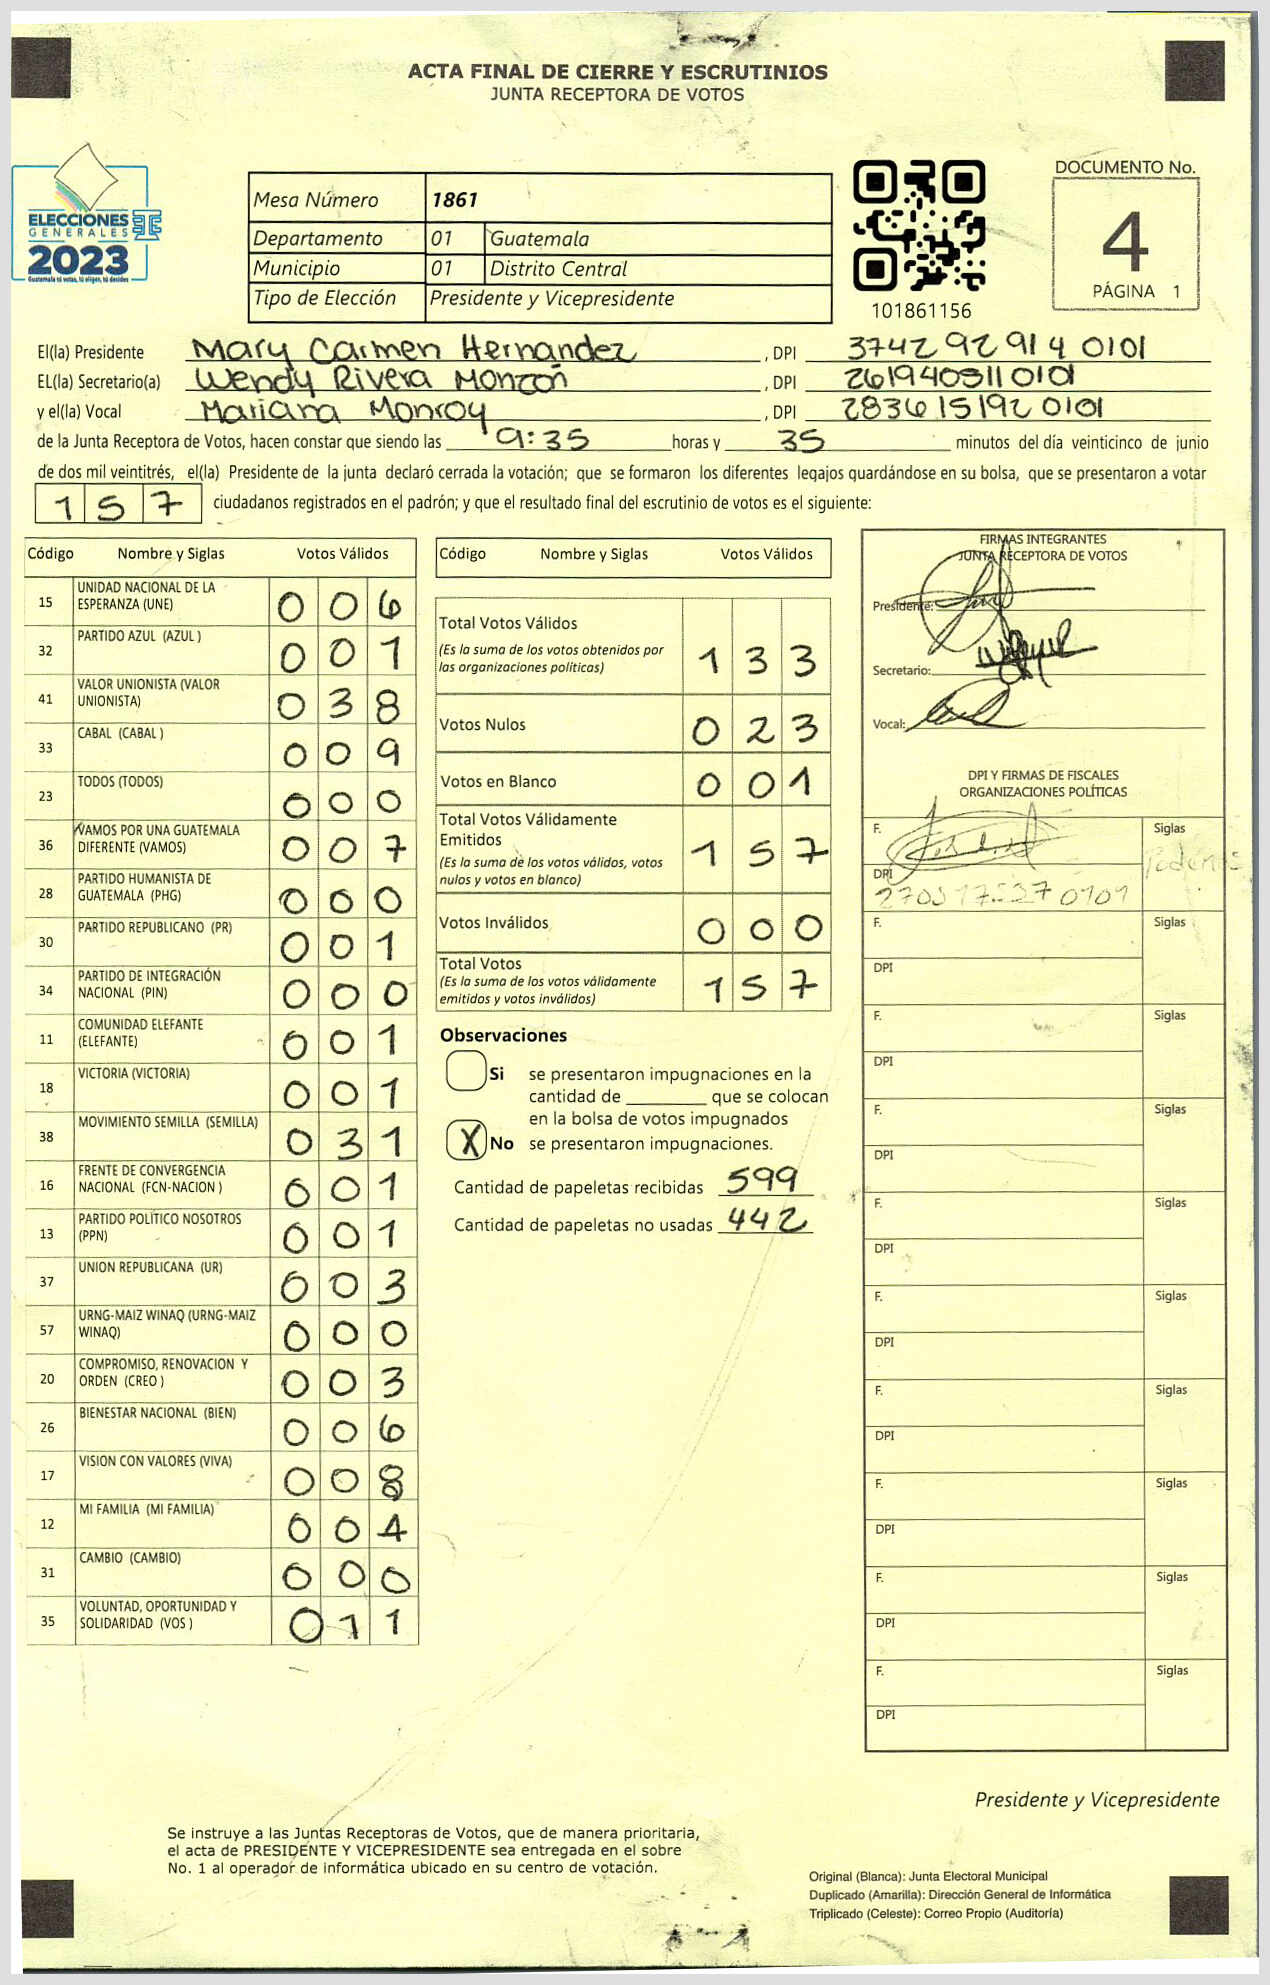 ACTA FINAL DE CIERRE Y ESCRUTINIOS
JUNTA RECEPTORA DE VOTOS
ELECCIONES
GENERALES
2023
Guatemala tú votas, tú eliges, tú decides
Mesa Número 1861
Departamento 01 Guatemala
Municipio 01 Distrito Central
Tipo de Elección Presidente y Vicepresidente
101861156
DOCUMENTO No.
4
PÁGINA 1
El(la) Presidente Mary Carmen Hernandez, DPI 3742 92 91 4 0101
EL(la) Secretario(a) Wendy Rivera Monzón, DPI 261940511 0101
y el(la) Vocal Mariana Monroy, DPI 2836 15192 0101
de la Junta Receptora de Votos, hacen constar que siendo las 9:35 horas y 35 minutos del día veinticinco de junio
de dos mil veintitrés, el(la) Presidente de la junta declaró cerrada la votación; que se formaron los diferentes legajos quardándose en su bolsa, que se presentaron a votar
157 ciudadanos registrados en el padrón; y que el resultado final del escrutinio de votos es el siguiente:
Código Nombre y Siglas Votos Válidos
15 UNIDAD NACIONAL DE LA ESPERANZA (UNE) 006
32 PARTIDO AZUL (AZUL ) 001
41 VALOR UNIONISTA (VALOR UNIONISTA) 038
33 CABAL (CABAL ) 009
23 TODOS (TODOS) 000
36 VAMOS POR UNA GUATEMALA DIFERENTE (VAMOS) 007
28 PARTIDO HUMANISTA DE GUATEMALA (PHG) 000
30 PARTIDO REPUBLICANO (PR) 001
34 PARTIDO DE INTEGRACIÓN NACIONAL (PIN) 000
11 COMUNIDAD ELEFANTE (ELEFANTE) 001
18 VICTORIA (VICTORIA) 001
38 MOVIMIENTO SEMILLA (SEMILLA) 031
16 FRENTE DE CONVERGENCIA NACIONAL (FCN-NACION ) 001
13 PARTIDO POLÍTICO NOSOTROS (PPN) 001
37 UNION REPUBLICANA (UR) 003
57 URNG-MAIZ WINAQ (URNG-MAIZ WINAQ) 000
20 COMPROMISO, RENOVACION Y ORDEN (CREO ) 003
26 BIENESTAR NACIONAL (BIEN) 006
17 VISION CON VALORES (VIVA) 008
12 MI FAMILIA (MI FAMILIA) 004
31 CAMBIO (CAMBIO) 000
35 VOLUNTAD, OPORTUNIDAD Y SOLIDARIDAD (VOS ) 011
Código Nombre y Siglas Votos Válidos
Total Votos Válidos 133
(Es la suma de los votos obtenidos por
las organizaciones políticas)
Votos Nulos 023
Votos en Blanco 001
Total Votos Válidamente
Emitidos 157
(Es la suma de los votos válidos, votos
nulos y votos en blanco)
Votos Inválidos 000
Total Votos 157
(Es la suma de los votos válidamente
emitidos y votos inválidos)
Observaciones
Si se presentaron impugnaciones en la
cantidad de ________ que se colocan
en la bolsa de votos impugnados
X No se presentaron impugnaciones.
Cantidad de papeletas recibidas 599
Cantidad de papeletas no usadas 442
FIRMAS INTEGRANTES
JUNTA RECEPTORA DE VOTOS
Presidente:
Secretario:
Vocal:
DPI Y FIRMAS DE FISCALES
ORGANIZACIONES POLÍTICAS
F. Siglas
Podemos
DPI
F. Siglas
DPI
F. Siglas
DPI
F. Siglas
DPI
F. Siglas
DPI
F. Siglas
DPI
F. Siglas
DPI
F. Siglas
DPI
F. Siglas
DPI
F. Siglas
DPI
Presidente y Vicepresidente
Se instruye a las Juntas Receptoras de Votos, que de manera prioritaria,
el acta de PRESIDENTE Y VICEPRESIDENTE sea entregada en el sobre
No. 1 al operador de informática ubicado en su centro de votación.
Original (Blanca): Junta Electoral Municipal
Duplicado (Amarilla): Dirección General de Informática
Triplicado (Celeste): Correo Propio (Auditoría)